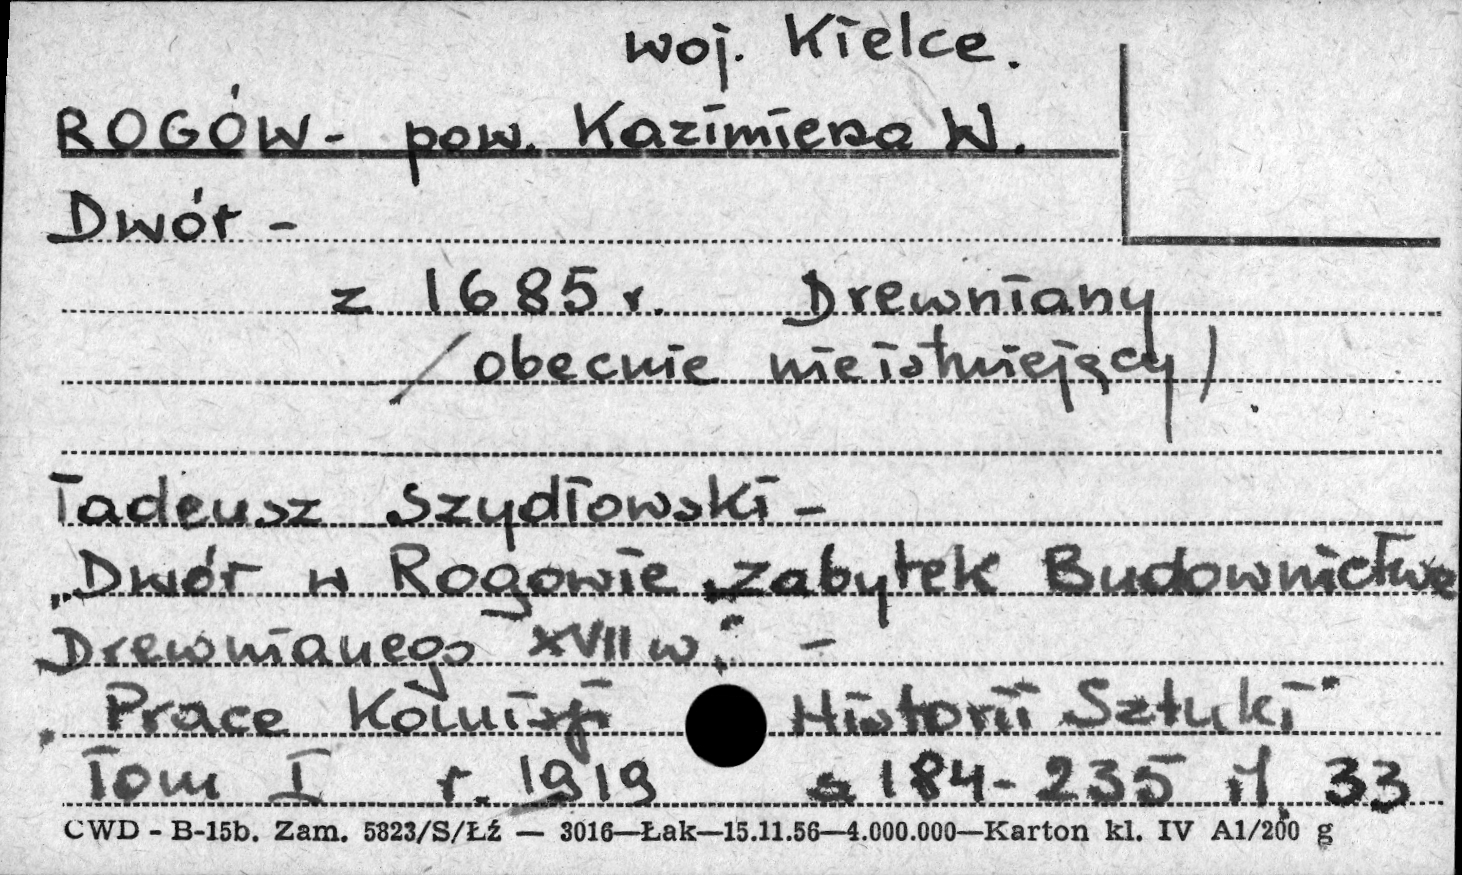 woj. Kielce.
ROGÓW - pow. Kazimierza W.
Dwór -
z 1685 r. Drewniany
/obecnie nieistniejący/.
Tadeusz Szydłowski -
„Dwór w Rogowie zabytek Budownictwa
Drewnianego XVII w." -
„Prace Komisji Historii Sztuki"
Tom I r. 1919 s 184-235 il. 33
CWD - B-15b. Zam. 5823/S/Łź — 3016—Łak—15.11.56—4.000.000—Karton kl. IV A1/200 g